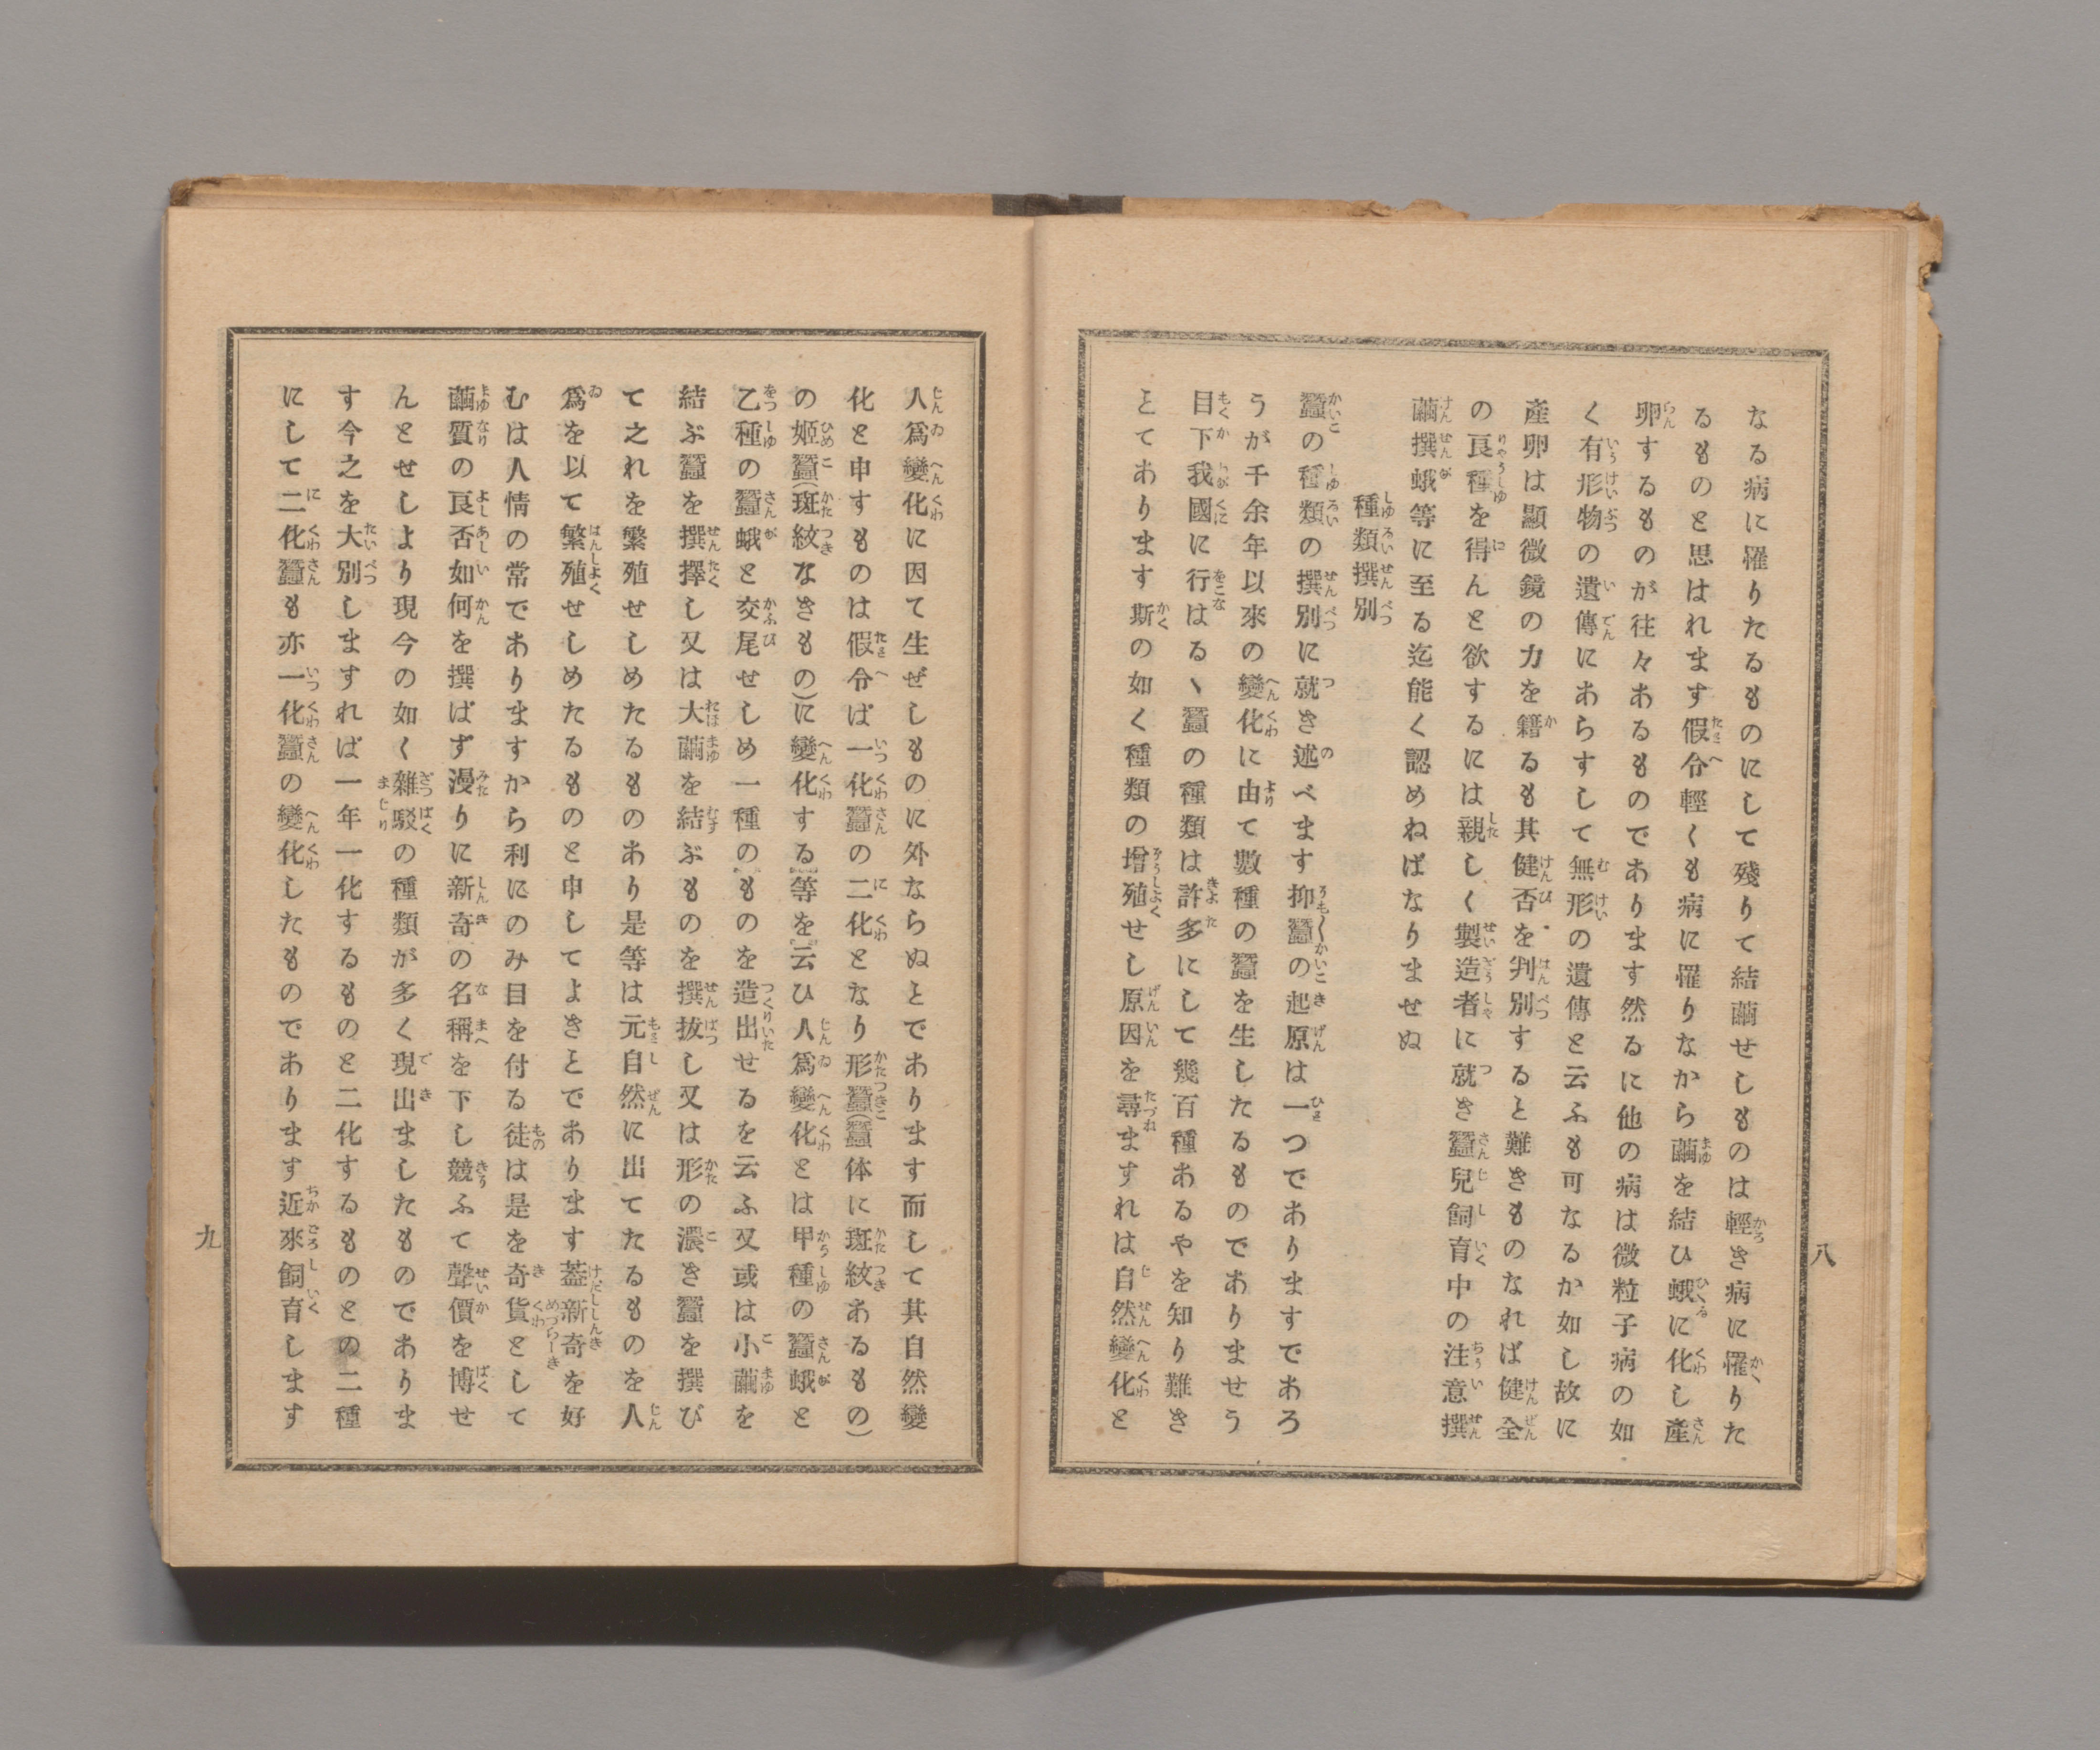 八
なる病に罹りたるものにして殘りて結繭せしものは輕き病に罹りた
るものと思はれます假令輕くも病に罹りなから繭を結ひ蛾に化し產
卵するものが往々あるものであります然るに他の病は微粒子病の如
く有形物の遺傳にあらすして無形の遺傳と云ふも可なるか如し故に
產卵は顯微鏡の力を籍るも其健否を判別すると難きものなれば健全
の良種を得んと欲するには親しく製造者に就き蠶兒飼育中の注意撰
繭撰蛾等に至る迄能く認めねばなりませぬ
種類撰別
蠶の種類の撰別に就き述べます抑蠶の起原は一つでありますであろ
うが千余年以來の變化に由て數種の蠶を生したるものでありませう
目下我國に行はるヽ蠶の種類は許多にして幾百種あるやを知り難き
とてあります斯の如く種類の增殖せし原因を尋ますれは自然變化と
人爲變化に因て生ぜしものに外ならぬとであります而して其自然變
化と申すものは假令ば一化蠶の二化となり形蠶(蠶体に斑紋あるもの)
の姬蠶(斑紋なきもの)に變化する等を云ひ人爲變化とは甲種の蠶蛾と
乙種の蠶蛾と交尾せしめ一種のものを造出せるを云ふ又或は小繭を
結ぶ蠶を撰擇し又は大繭を結ぶものを撰拔し又は形の濃き蠶を撰び
て之れを繁殖せしめたるものあり是等は元自然に出てたるものを人
爲を以て繁殖せしめたるものと申してよきとであります蓋新奇を好
むは人情の常でありますから利にのみ目を付る徒は是を奇貨として
繭質の良否如何を撰ばず漫りに新奇の名稱を下し競ふて聲價を博せ
んとせしより現今の如く雜駁の種類が多く現出ましたものでありま
す今之を大別しますれば一年一化するものと二化するものとの二種
にして二化蠶も亦一化蠶の變化したものであります近來飼育します
九